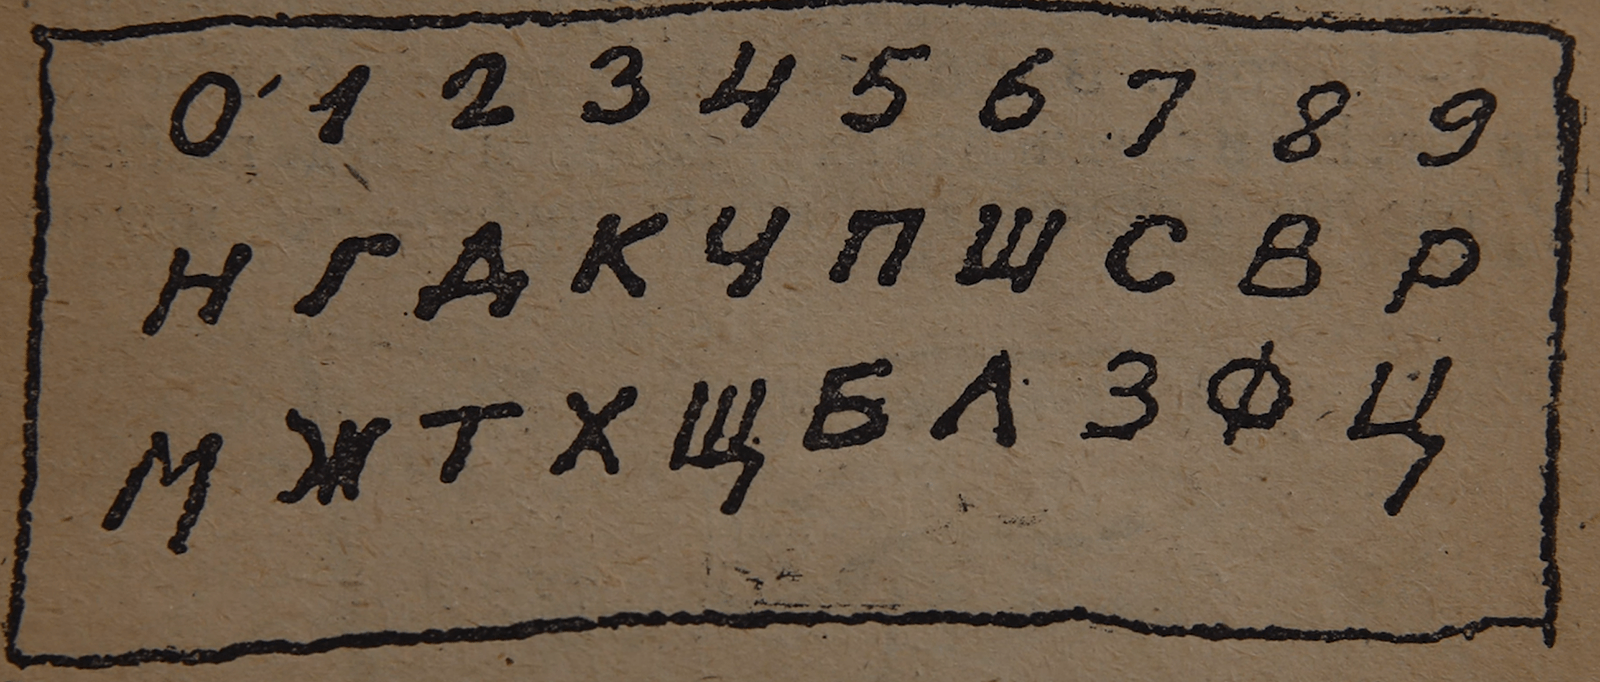 0 1 2 3 4 5 6 7 8 9
Н Г Д К Ч П Ш С В Р
М Ж Т Х Щ Б Л З Ф Ц